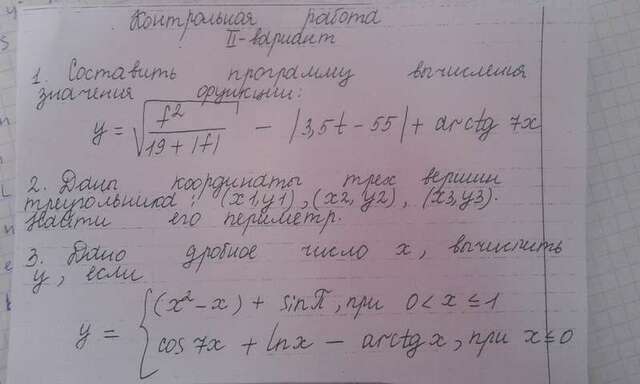 Контрольная работа
II-вариант
1. Составить программу вычисления
значения функции:
y = √(f² / (19 + |f|)) - |3,5t - 55| + arctg 7x
2. Даны координаты трех вершин
треугольника: (x1,y1), (x2, y2), (x3,y3).
Найти его периметр.
3. Дано дробное число x, вычислить
y, если
y = { (x² - x) + sin π, при 0 < x ≤ 1
cos 7x + ln x - arctg x, при x ≤ 0